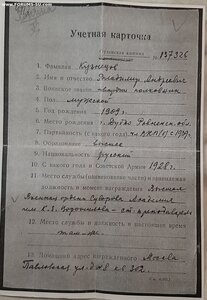 www.FORUMS-SU.com
Учетная карточка
137326
1. Фамилия Кузнецов
2. Имя и отчество Владимир Андреевич
3. Воинское звание полковник
4. Пол мужской
5. Год рождения 1909 г.
6. Место рождения г. Дубно Ровенск. обл.
7. Партийность (с какого года) чл. ВКП(б) с 1939.
8. Образование высшее
9. Национальность русский
10. С какого года в Советской Армии 1928 г.
11. Место службы (наименование части) и занимаемая
должность в момент награждения Высшая
Военная Академия
им. К. Е. Ворошилова - ст. преподаватель
12. Место службы и должность в настоящее
время
13. Домашний адрес награжденного Москва
Павловская ул. д. 8 кв. 302.